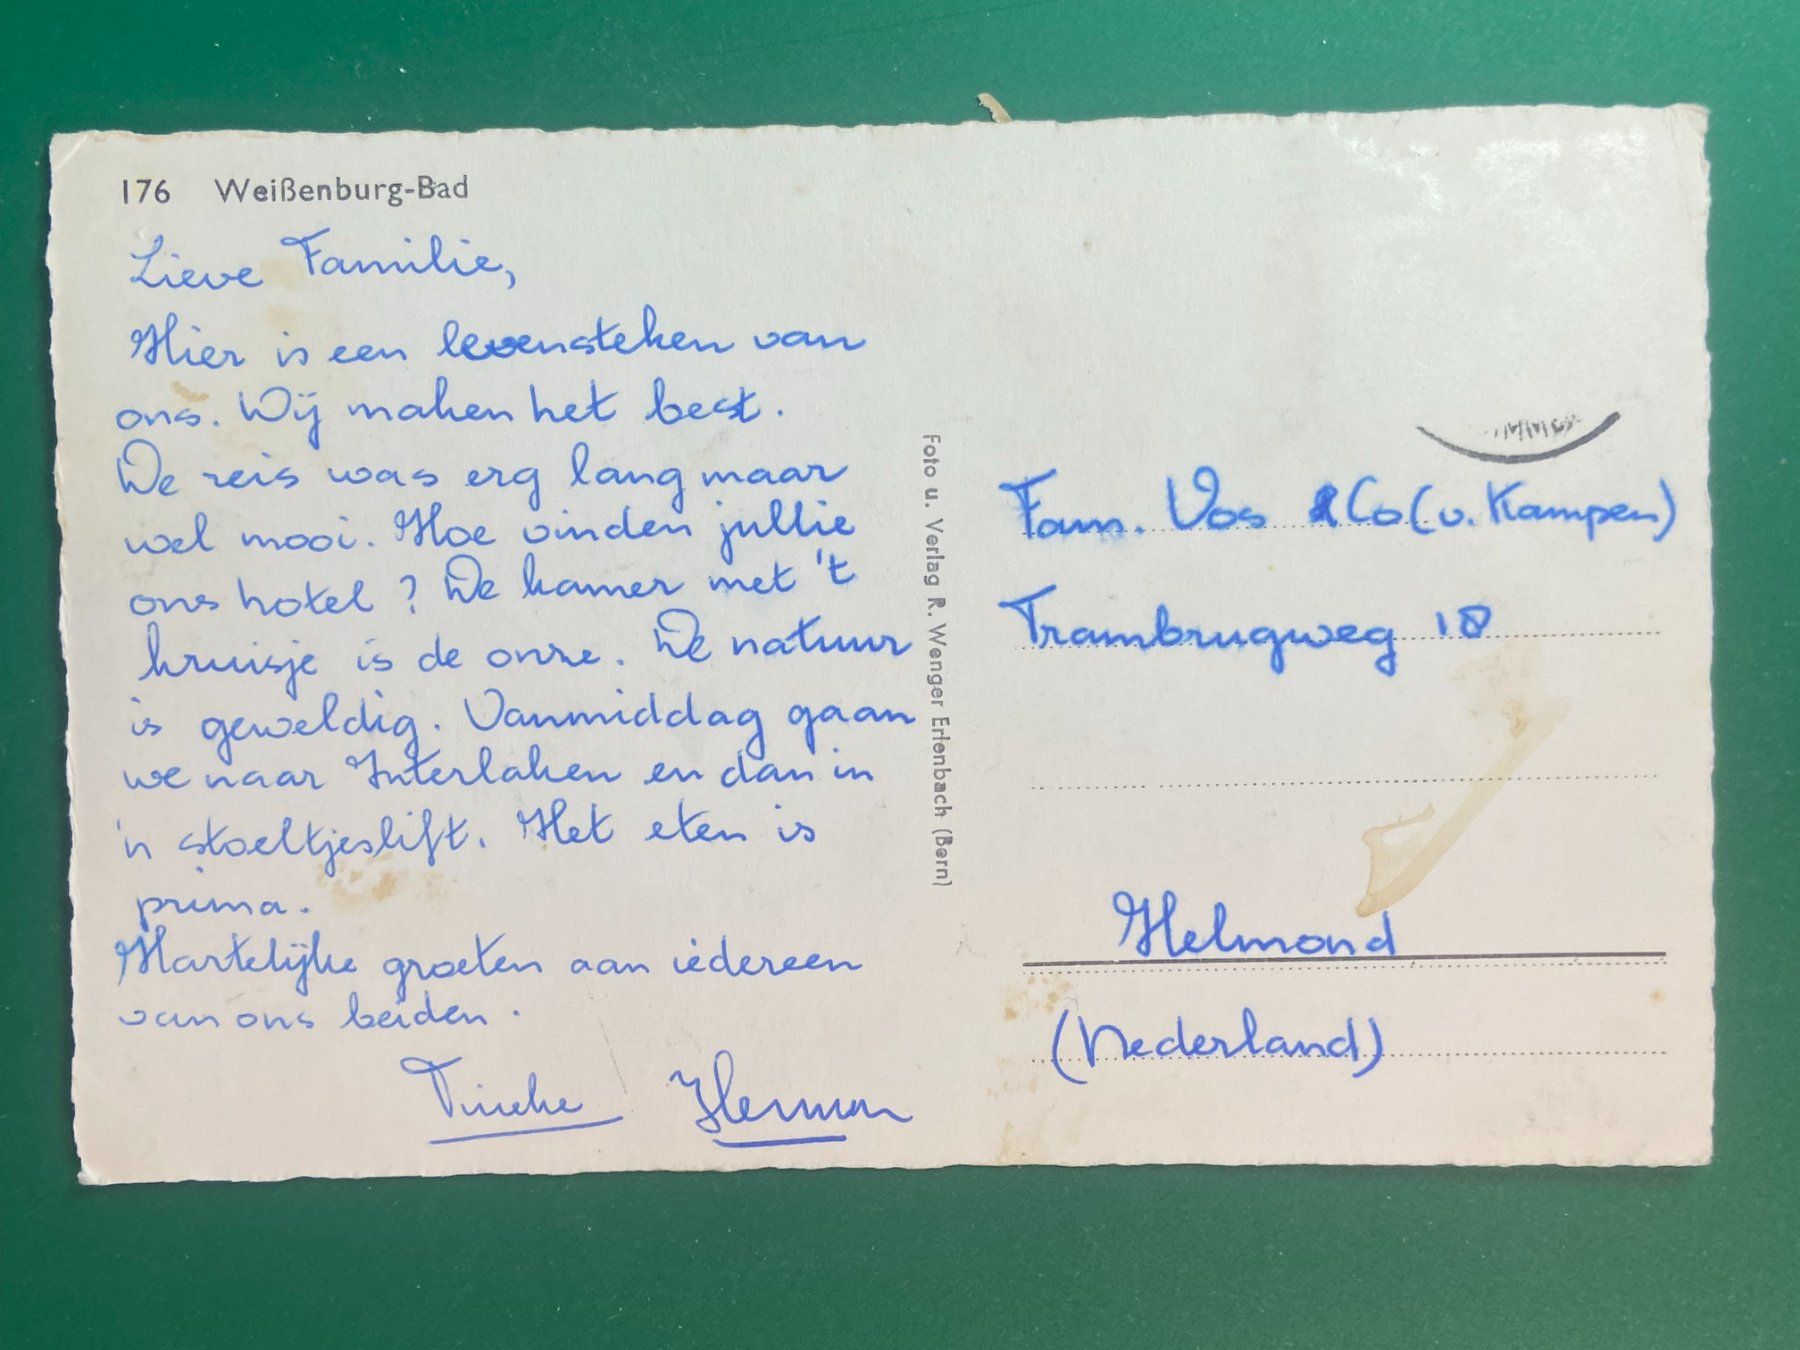 176 Weißenburg-Bad
Lieve Familie,
Hier is een levensteken van
ons. Wij maken het best.
De reis was erg lang maar
wel mooi. Hoe vinden jullie
ons hotel? De kamer met 't
kruisje is de onze. De natuur
is geweldig. Vanmiddag gaan
we naar Interlaken en dan in
'n stoeltjeslift. Het eten is
prima.
Hartelijke groeten aan iedereen
van ons beiden.
Tineke Herman
Foto u. Verlag R. Wenger Erlenbach (Bern)
Fam. Vos & Co (v. Kampen)
Trambrugweg 18
Helmond
(Nederland)